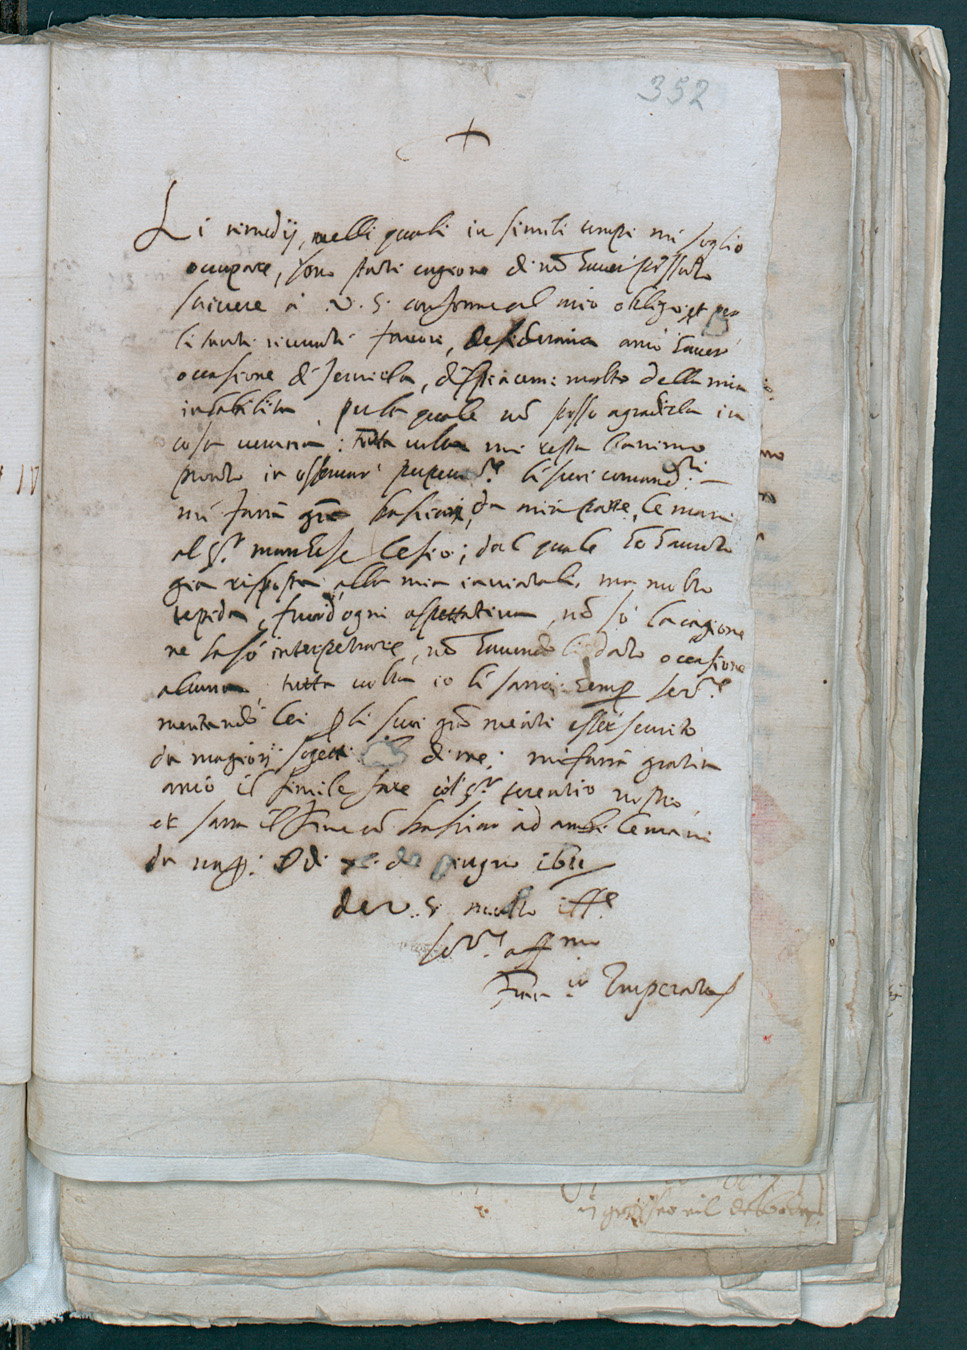 352
Li rimedij, nelli quali in simili tempi mi soglio
occupare, sono stati cagione di nõ haver possuto
scrivere à V. S. conforme al mio obligo, et per
li tanti ricevuti favori, desiderava anco haver
occasione di servirla, dispiacemi molto della mia
inhabilita per la quale nõ posso agradirla in
cosa veruna: tutta volta mi resta l'animo
pronto in li suoi comand.ti
mi farrà grã basciar, da mia parte, le mani
al S.r marchese Cesio; dal quale ho havuto
già risposta alla mia inviatali, ma molto
tepida, fuor d'ogni aspettativa, nõ sò la cagione
ne la sò interpetrare, nõ havendo li dato occasione
alcuna, tutta volta io li sarrò semp ser.re
meritando lei p li suoi grã meriti esser servito
da magiorij sogetti di me; mi farrà gratia
anco il simile fare col S.r terentio nostro
et sarra il fine cõ basciar ad ambi le mani
da nap: di giugno 1611
de V. S. molto Ill.e
ser.re aff.mo
Fran.co Imperato